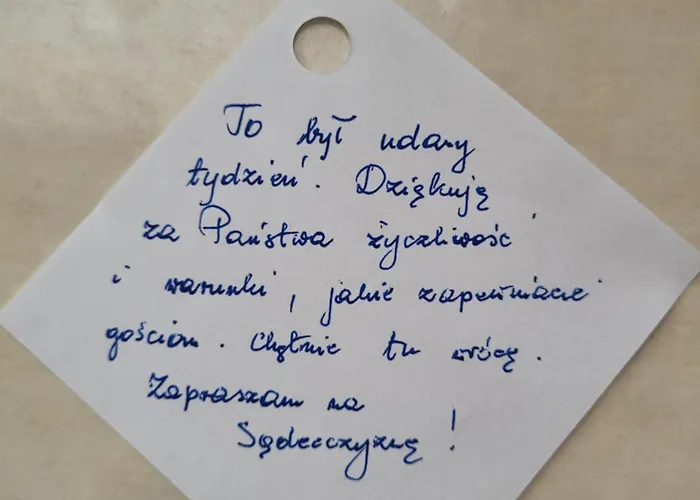 To był udany
tydzień. Dziękuję
za Państwa życzliwość
i warunki, jakie zapewniacie
gościom. Chętnie tu wrócę.
Zapraszam na
Sądecczyznę!